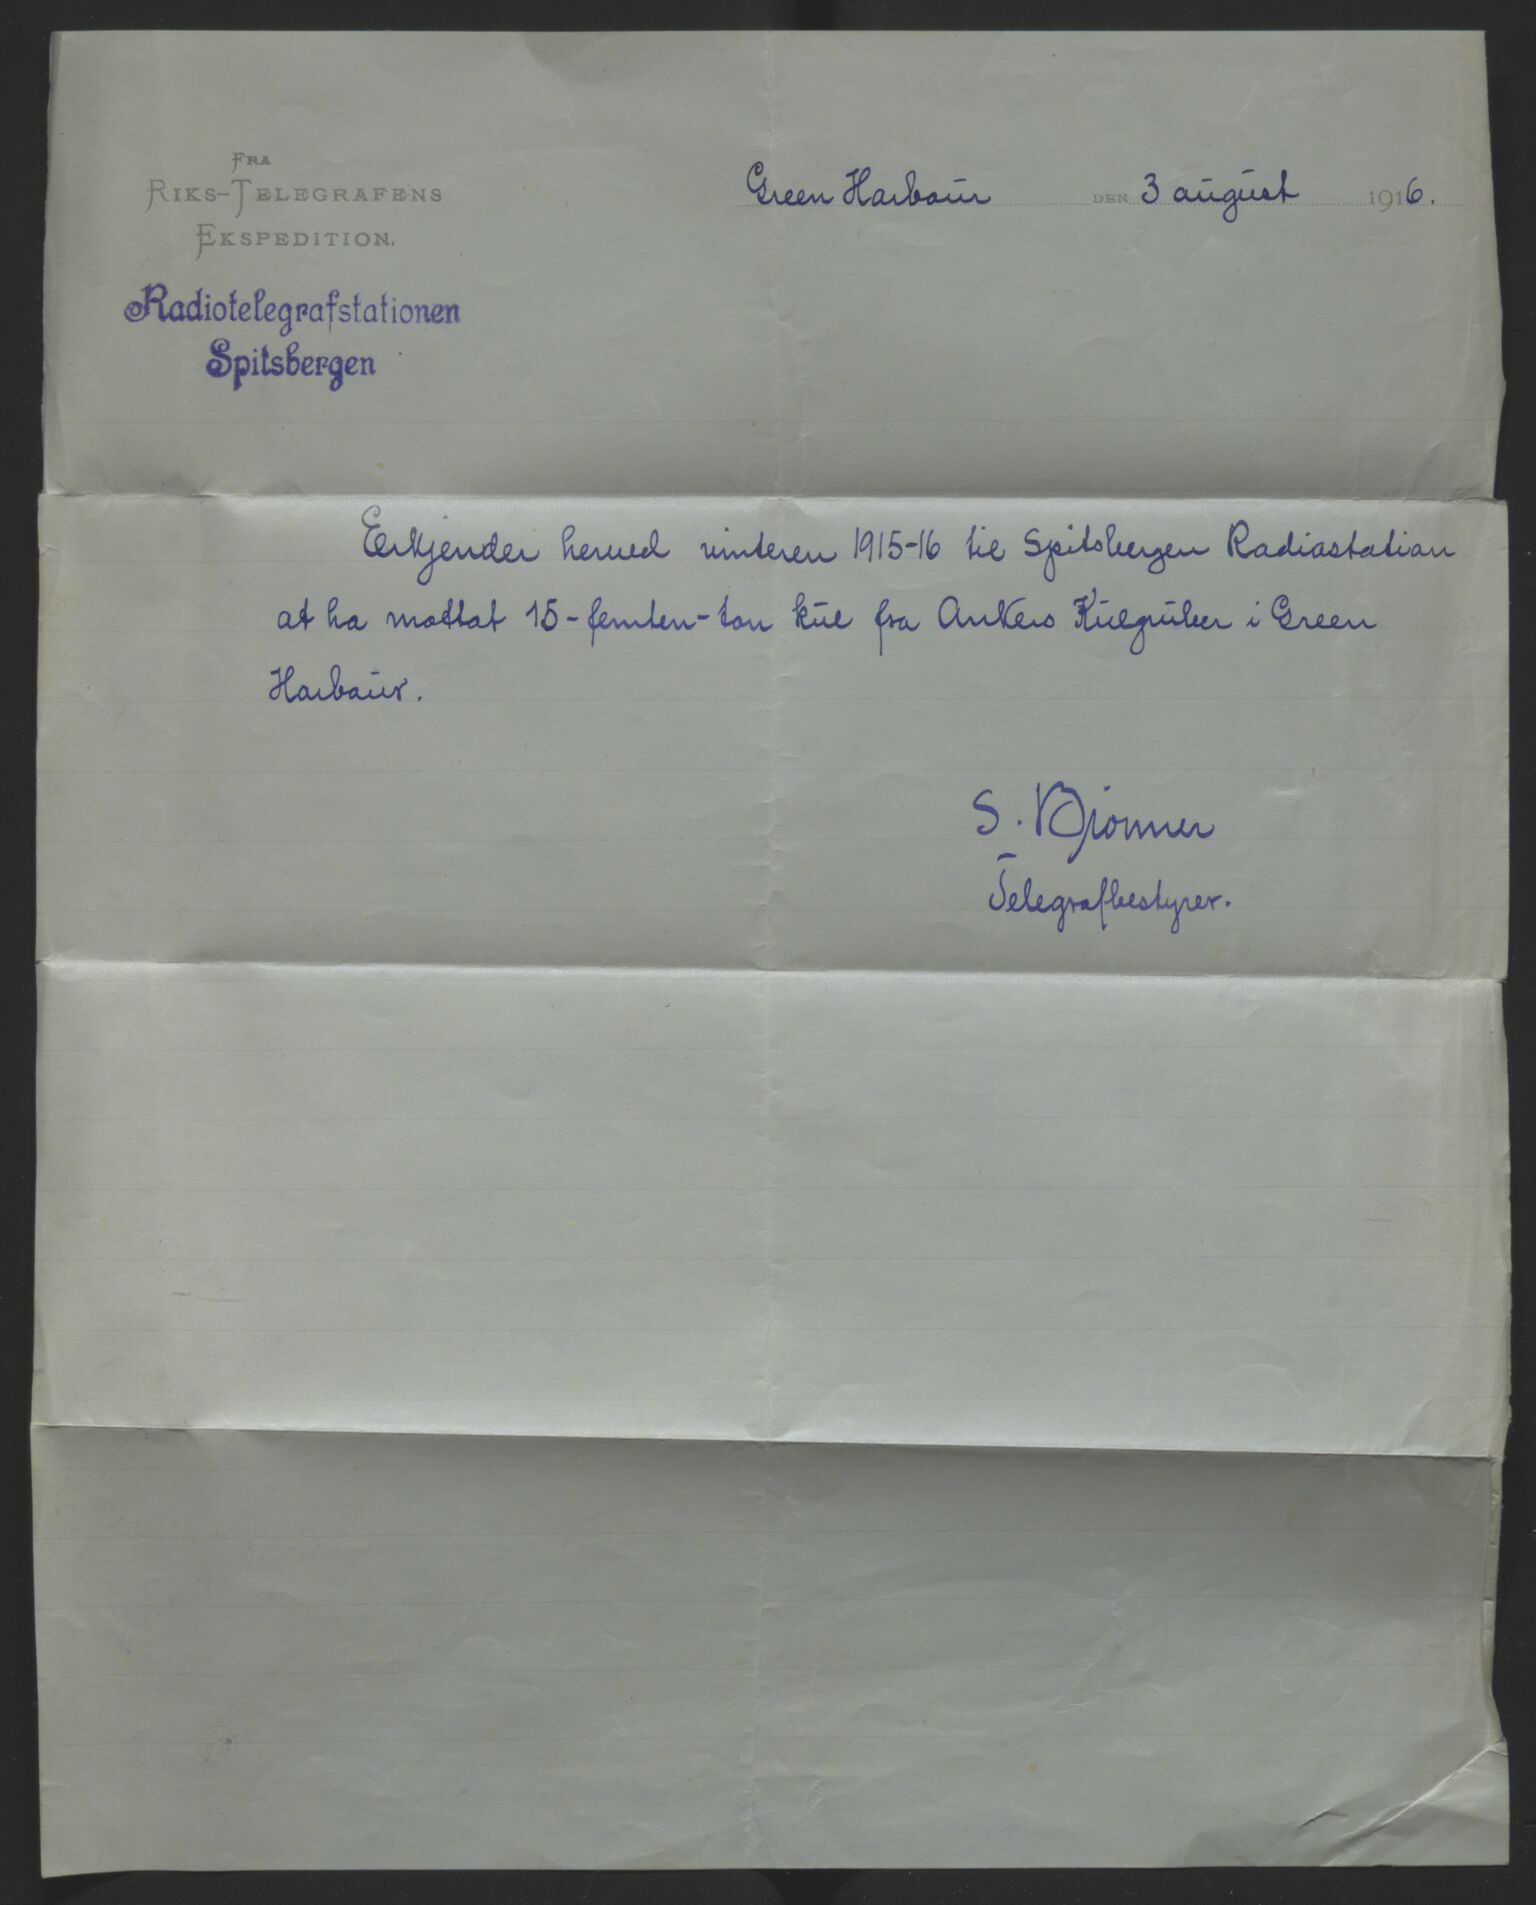 FRA
RIKS-TELEGRAFENS
EKSPEDITION.
Radiotelegrafstationen
Spitsbergen
Green Harbour DEN 3 august 1916.
Erkjender herved vinteren 1915-16 til Spitsbergen Radiostation
at ha mottat 15-femten-ton kul fra Ankers Kulgruber i Green
Harbour.
S. Bjonner
Telegrafbestyrer.